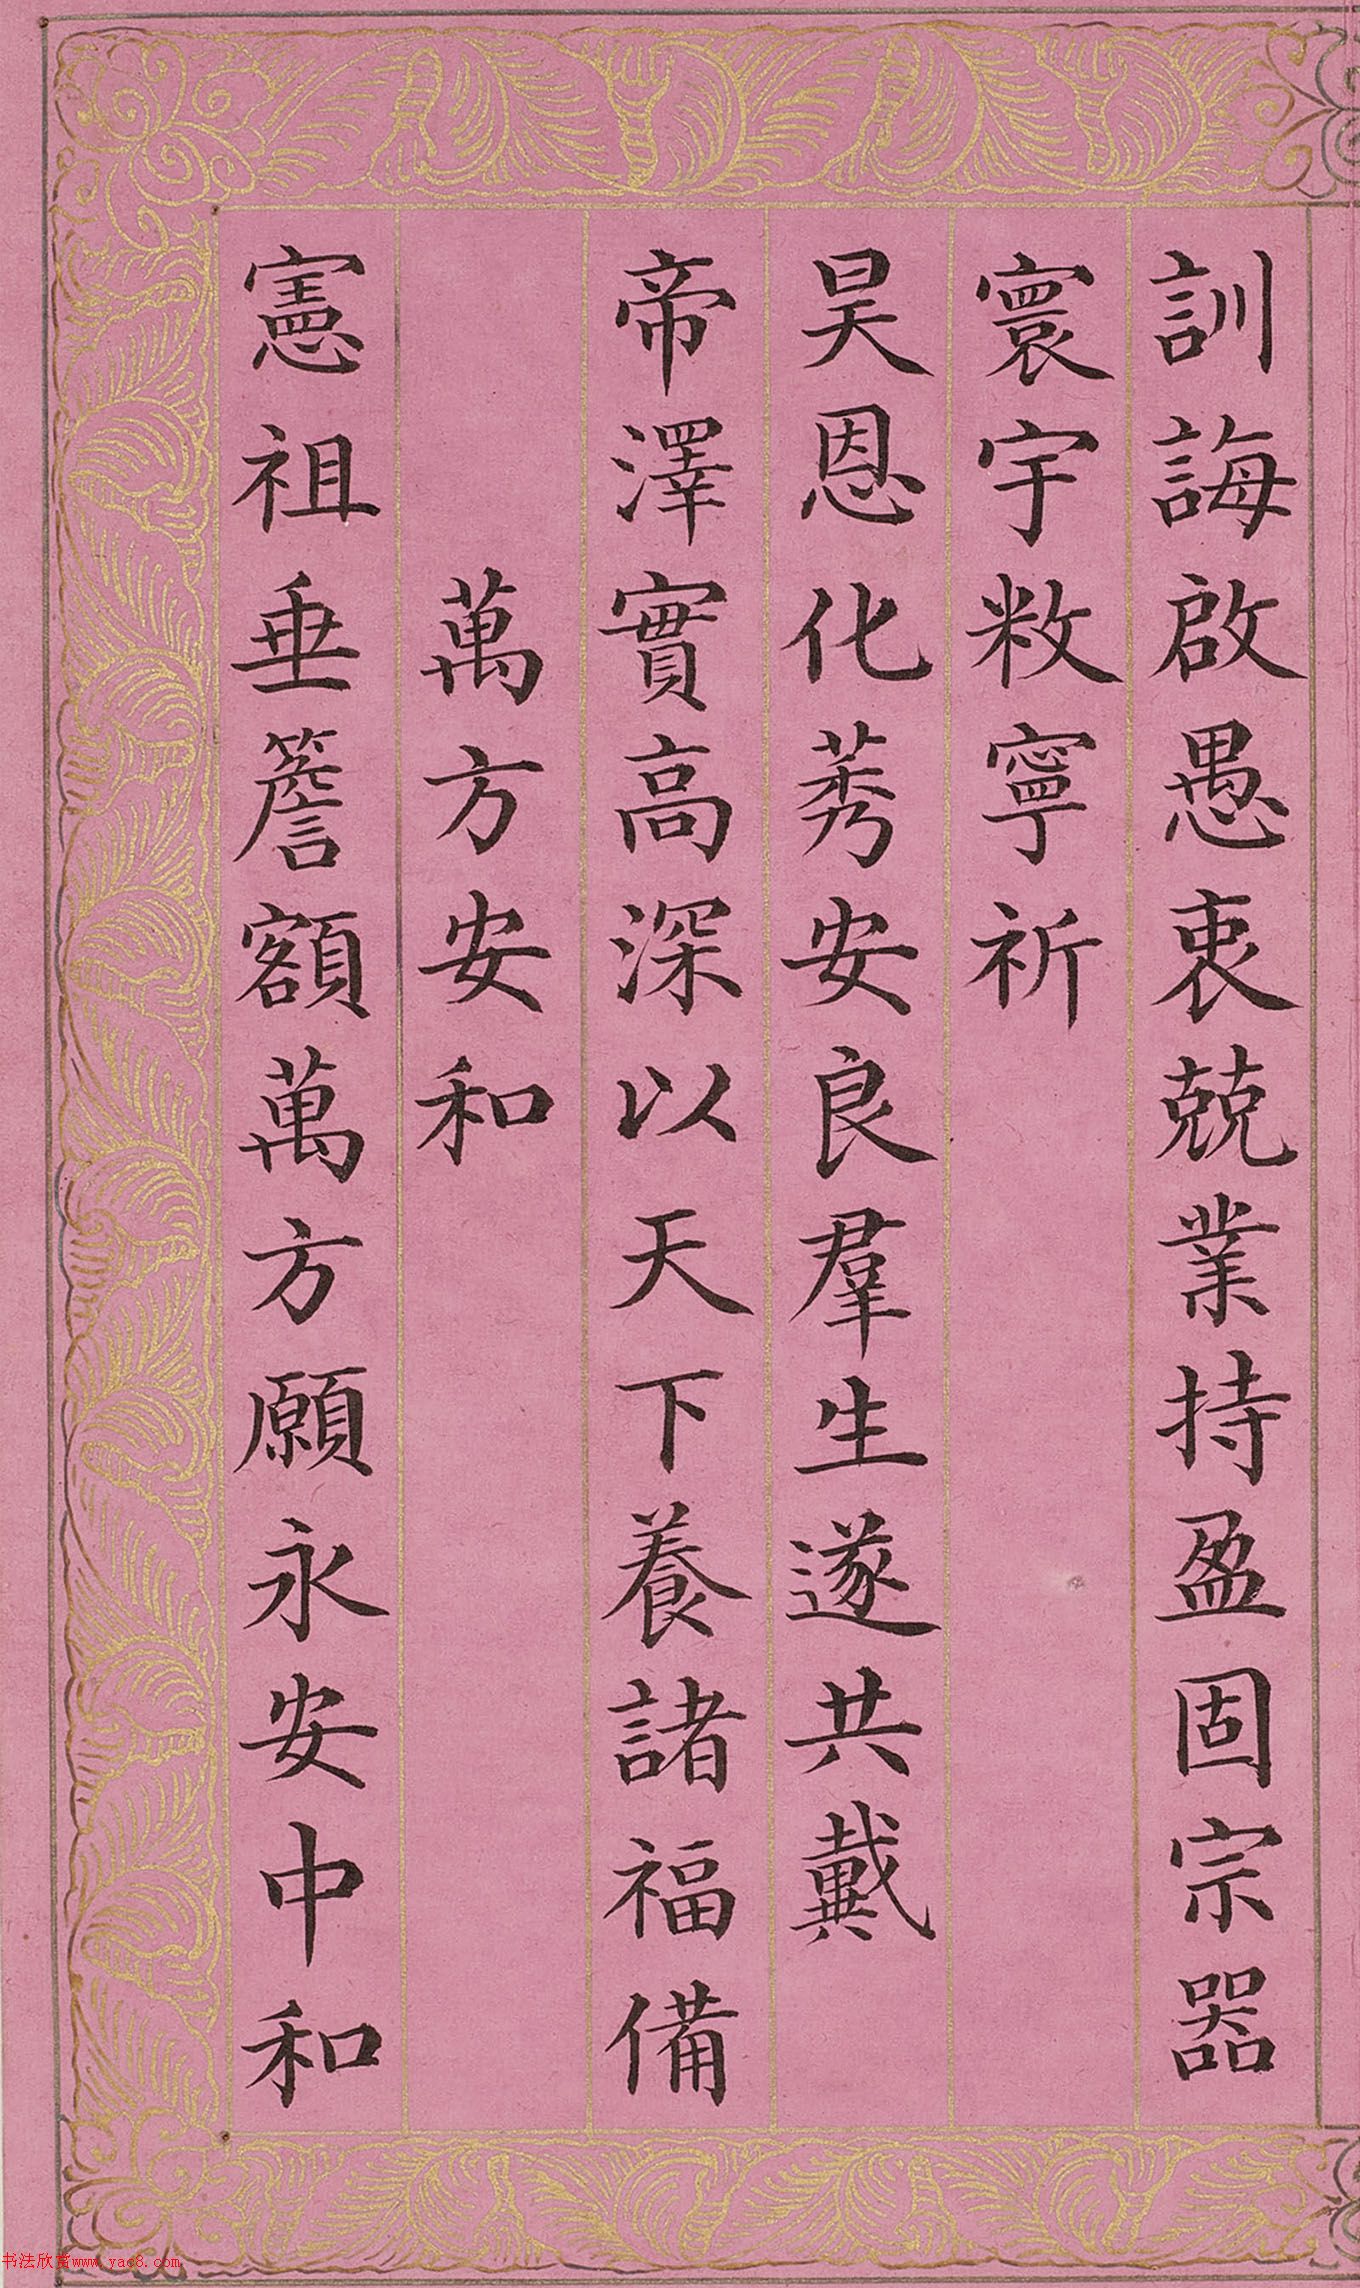 訓誨啟愚衷兢業持盈固宗器
寰宇敉寧祈
昊恩化莠安良羣生遂共戴
帝澤實高深以天下養諸福備
萬方安和
憲祖垂簷額萬方願永安中和
书法欣赏www.yac8.com